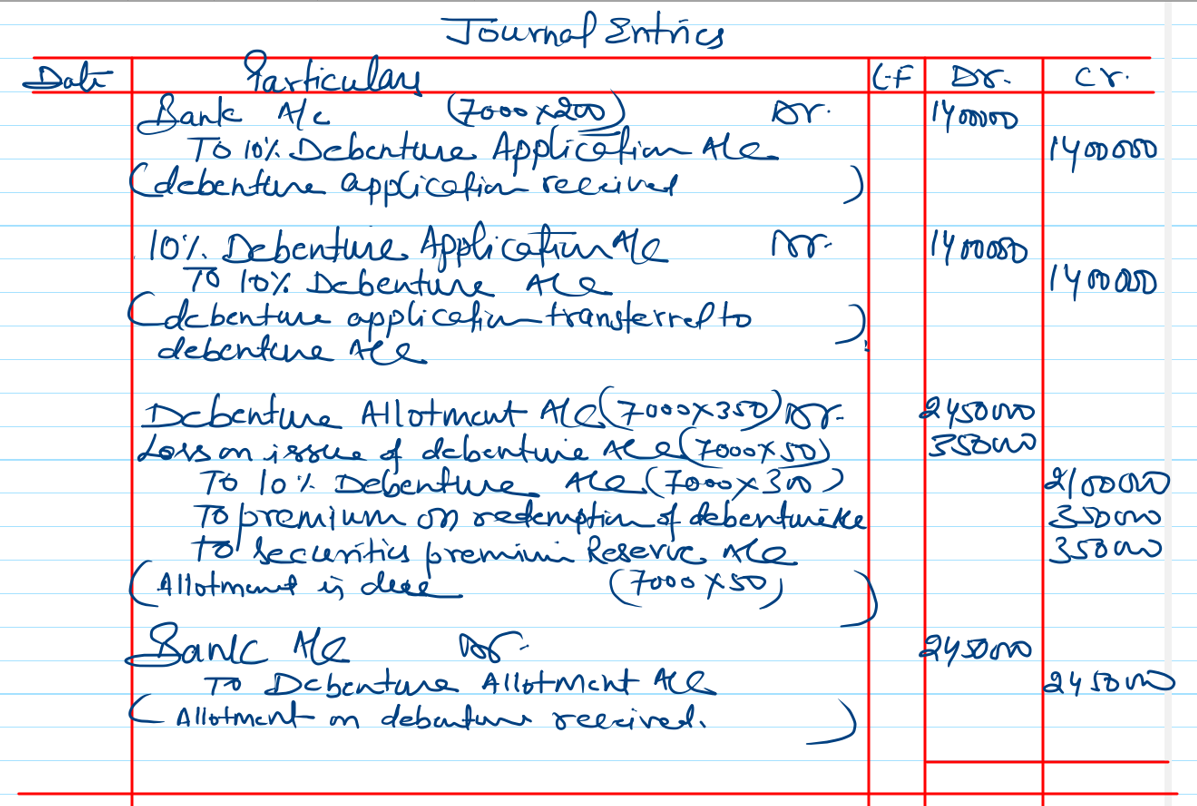 Journal Entries
Date Particulars L.F Dr. Cr.
Bank A/c (7000×200) Dr. 1400000
To 10% Debenture Application A/c 1400000
(debenture application received)
10% Debenture Application A/c Dr. 1400000
To 10% Debenture A/c 1400000
(debenture application transferred to)
debenture A/c
Debenture Allotment A/c (7000×350) Dr. 2450000
Loss on issue of debenture A/c (7000×50) 350000
To 10% Debenture A/c (7000×300) 2100000
To premium on redemption of debenture A/c 350000
To securities premium Reserve A/c 350000
(Allotment is due (7000×50))
Bank A/c Dr. 2450000
To Debenture Allotment A/c 2450000
(Allotment on debenture received.)